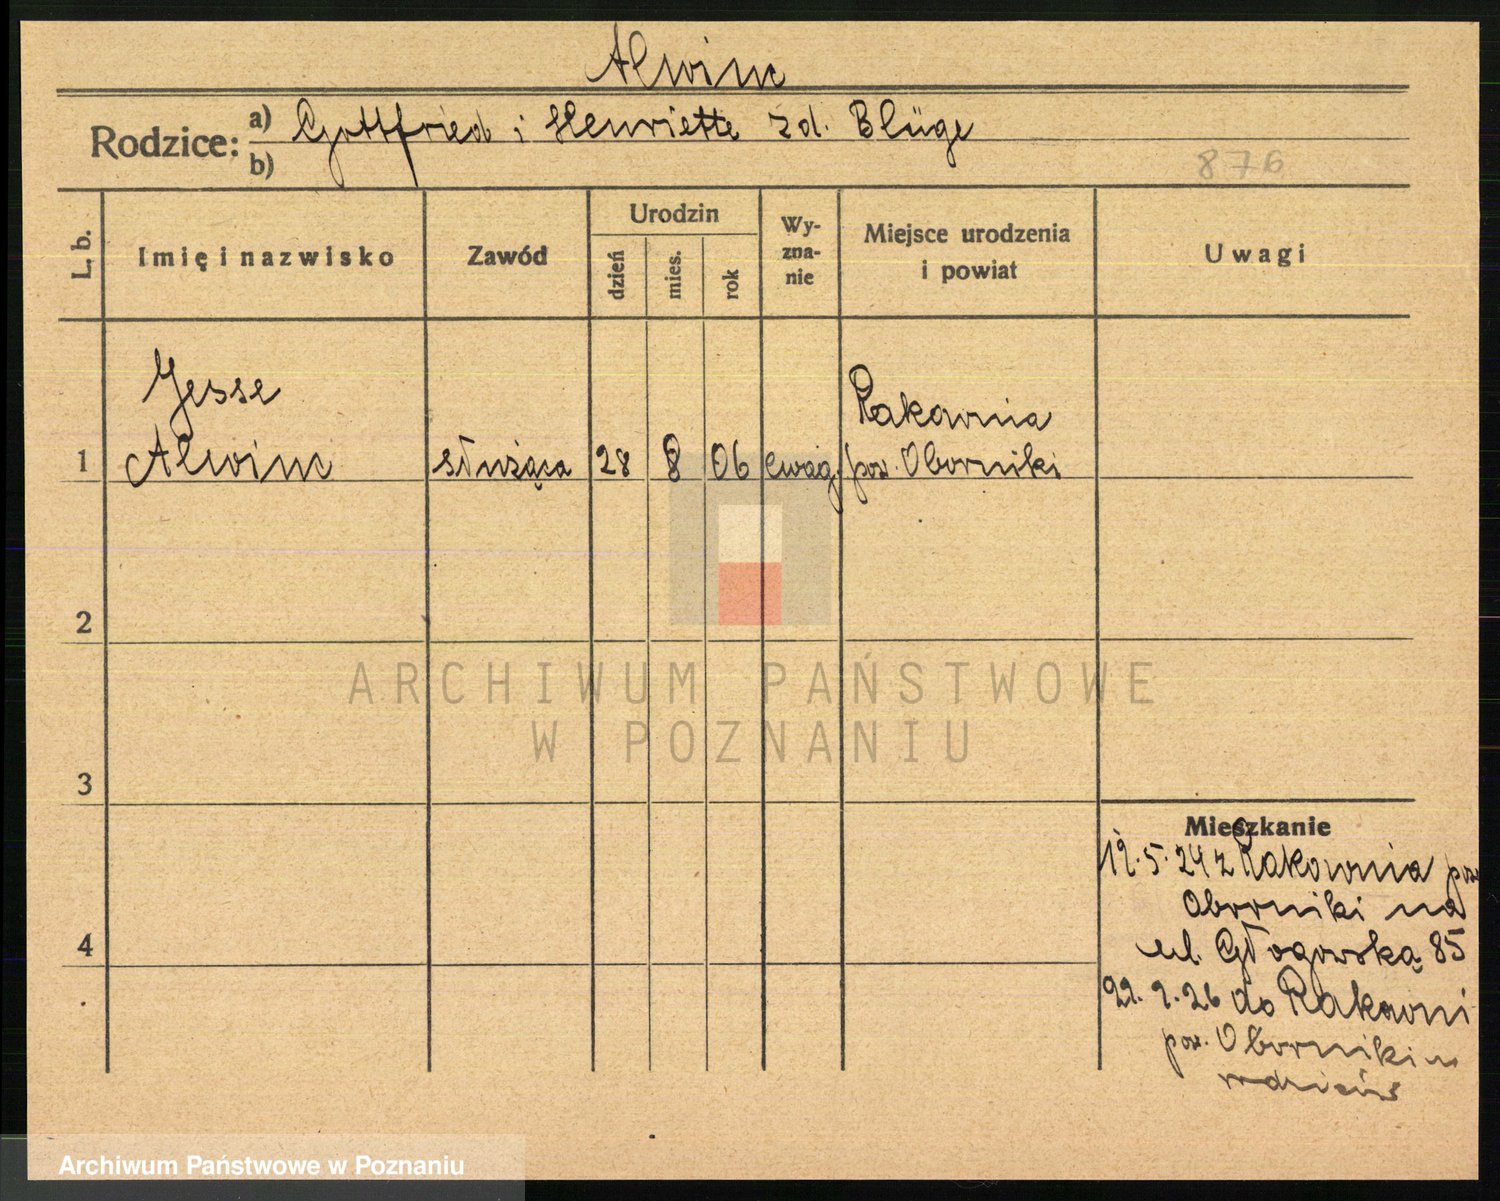 Alwine
Rodzice: a) Gottfried i Henriette zd. Blüge
b)
876
L. b.
Imię i nazwisko
Zawód
Urodzin
dzień
mies.
rok
Wy-
zna-
nie
Miejsce urodzenia
i powiat
Uwagi
Jesse
Rakownia
1 Alwine służąca 28 8 06 ewag. pow. Oborniki
2
3
4
ARCHIWUM PAŃSTWOWE
W POZNANIU
Mieszkanie
5. 24 z Rakownia pow
Oborniki na
ul. Głogowską 85
26 do Rakowni
pow. Oborniki
Archiwum Państwowe w Poznaniu